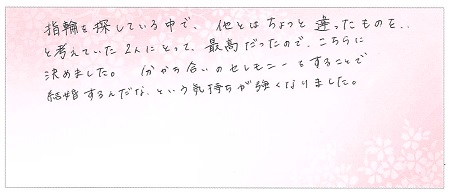 指輪を探している中で、他とはちょっと違ったものを、、
と考えていた2人にとって、最高だったので、こちらに
決めました。 分かち合いのセレモニーをすることで
結婚するんだな、という気持ちが強くなりました。